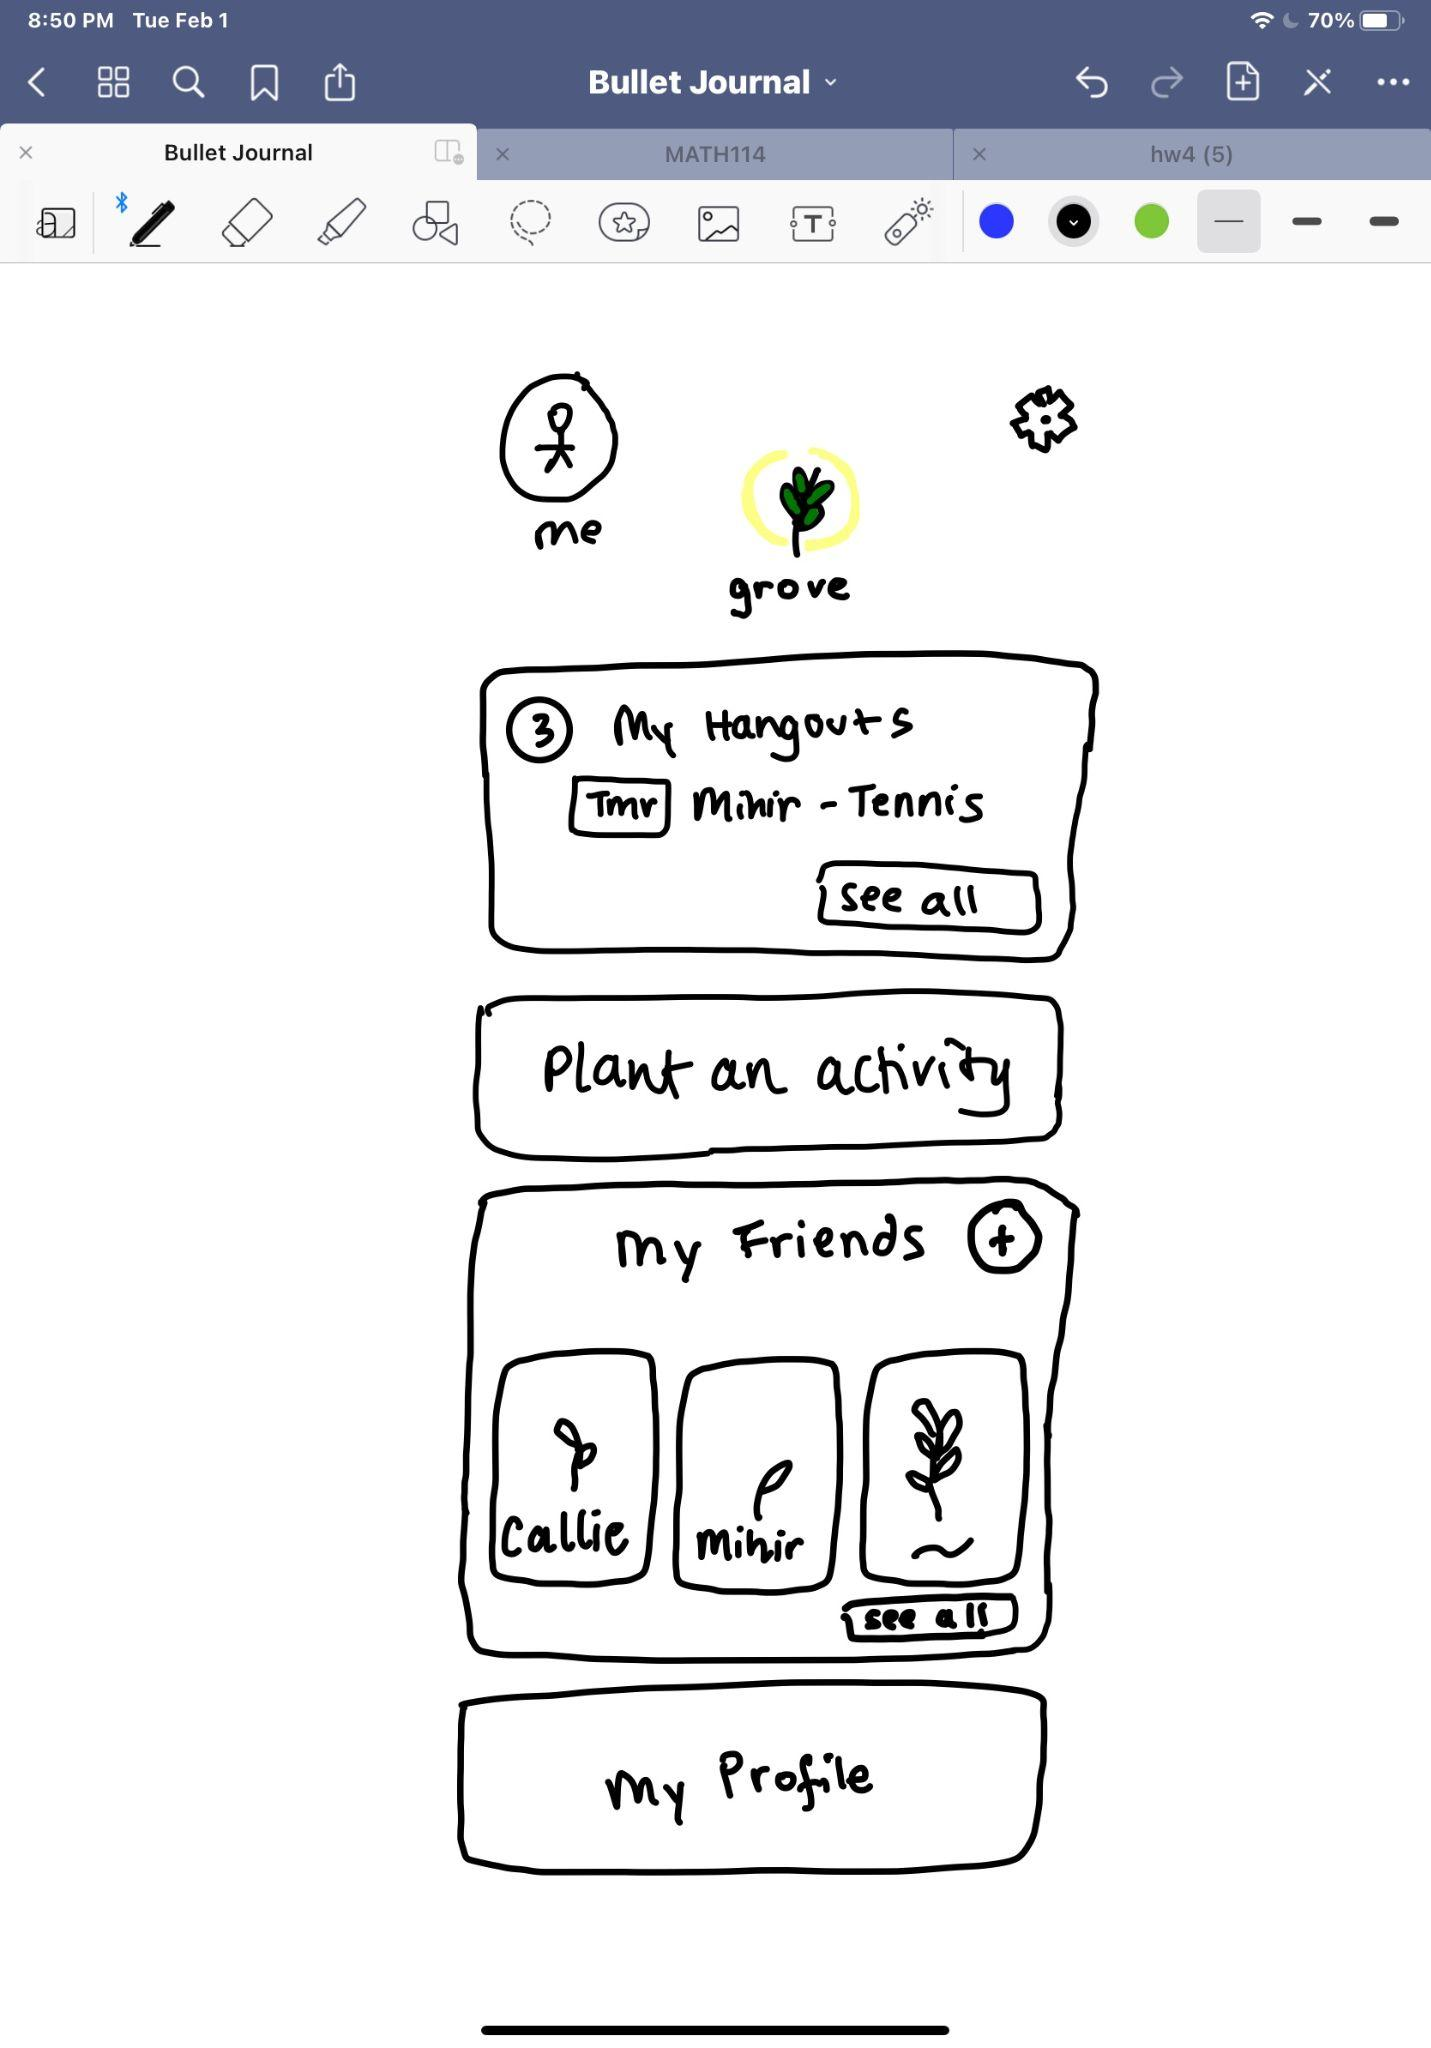 8:50 PM Tue Feb 1
70%
Bullet Journal
Bullet Journal
MATH114
hw4 (5)
a
T
me
grove
3 My Hangouts
Tmr Mihir - Tennis
see all
Plant an activity
my Friends +
Callie
mihir
see all
my Profile